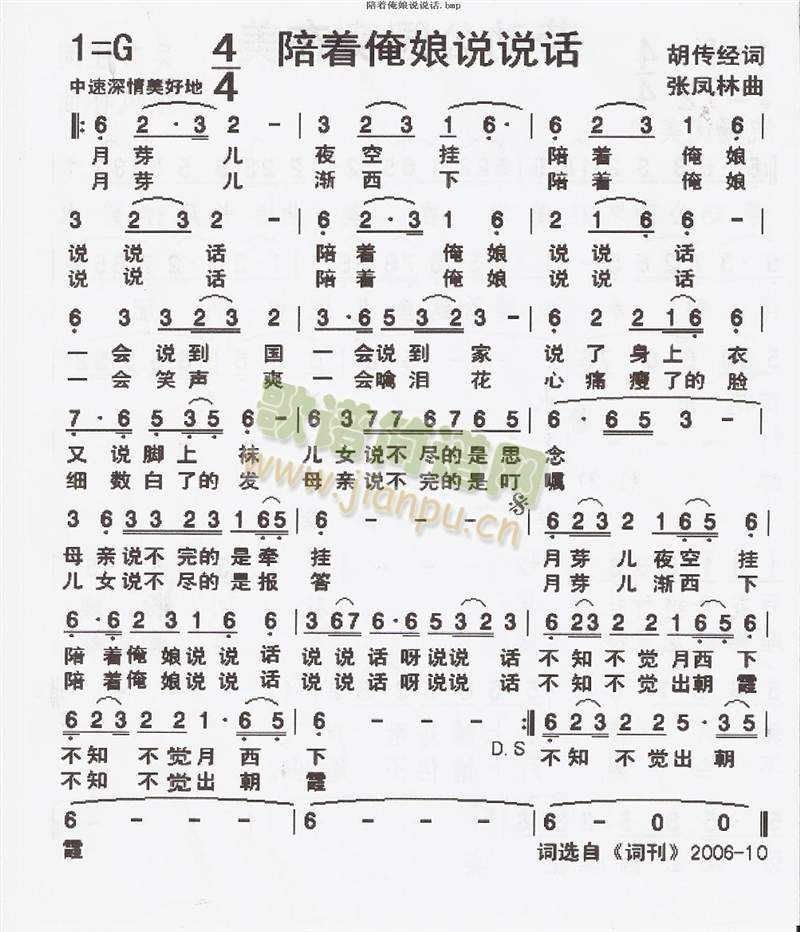 陪着俺娘说说话.bmp
1=G 4/4 陪着俺娘说说话 胡传经词
中速深情美好地 张凤林曲
‖: 6 2·3 2 - | 3 2 3 1 6· | 6 2 3 1 6 |
月芽儿 夜空挂 陪着俺娘
月芽儿 渐西下 陪着俺娘
3 2 3 2 - | 6 2·3 1 6 | 2 1 6 6 - |
说说话 陪着俺娘 说说话
说说话 陪着俺娘 说说话
6 3 3 2 3 2 | 3·3 2 3 3 - | 6 2 2 1 6 6 |
一会说到国 一会说到家 说了身上衣
一会笑声爽 一会噙泪花 心痛瘦了的脸
7·6 5 3 5 6 - | 6 3 7 7 6 7 6 5 | 6· 6 5 3 - |
又说脚上袜 儿女说不尽的是思念
细数白了的发 母亲说不完的是叮嘱
3 6 3 3 2 3 1 6 5 | 6 - - - | 6 2 3 2 1 6 5 6 |
母亲说不完的是牵挂 月芽儿夜空挂
儿女说不尽的是报答 月芽儿渐西下
6·6 2 3 1 6 6 | 3 6 7 6·6 5 3 2 3 | 6 2 3 2 2 1 6 5 6 |
陪着俺娘说说话 说说话呀说说话 不知不觉月西下
陪着俺娘说说话 说说话呀说说话 不知不觉出朝霞
6 2 3 2 2 1· 6 5 | 6 - - - :‖ 6 2 3 2 2 5· 3 5 |
不知不觉月西下 D.S 不知不觉出朝
不知不觉出朝霞
6 - - - | 6 - - - | 6 - 0 0 ‖
霞 词选自《词刊》2006-10
歌谱简谱网
www.jianpu.cn